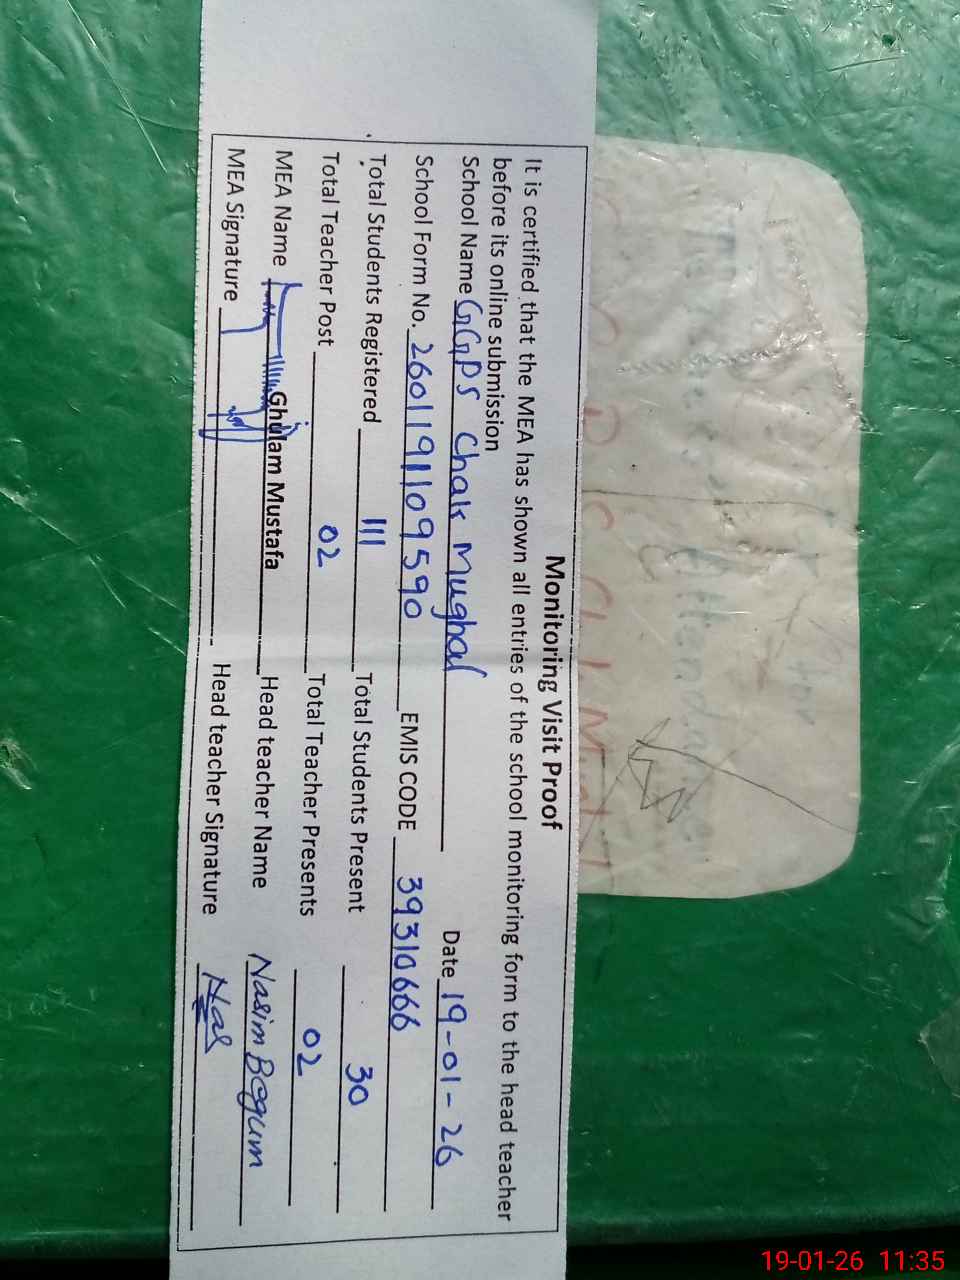 Monitoring Visit Proof
It is certified that the MEA has shown all entries of the school monitoring form to the head teacher
before its online submission
School Name GGPS Chak Mughal Date 19-01-26
School Form No. 2601191109590 EMIS CODE 39310666
Total Students Registered 111 Total Students Present 30
Total Teacher Post 02 Total Teacher Presents 02
MEA Name Ghulam Mustafa Head teacher Name Nasim Begum
MEA Signature Head teacher Signature
19-01-26 11:35